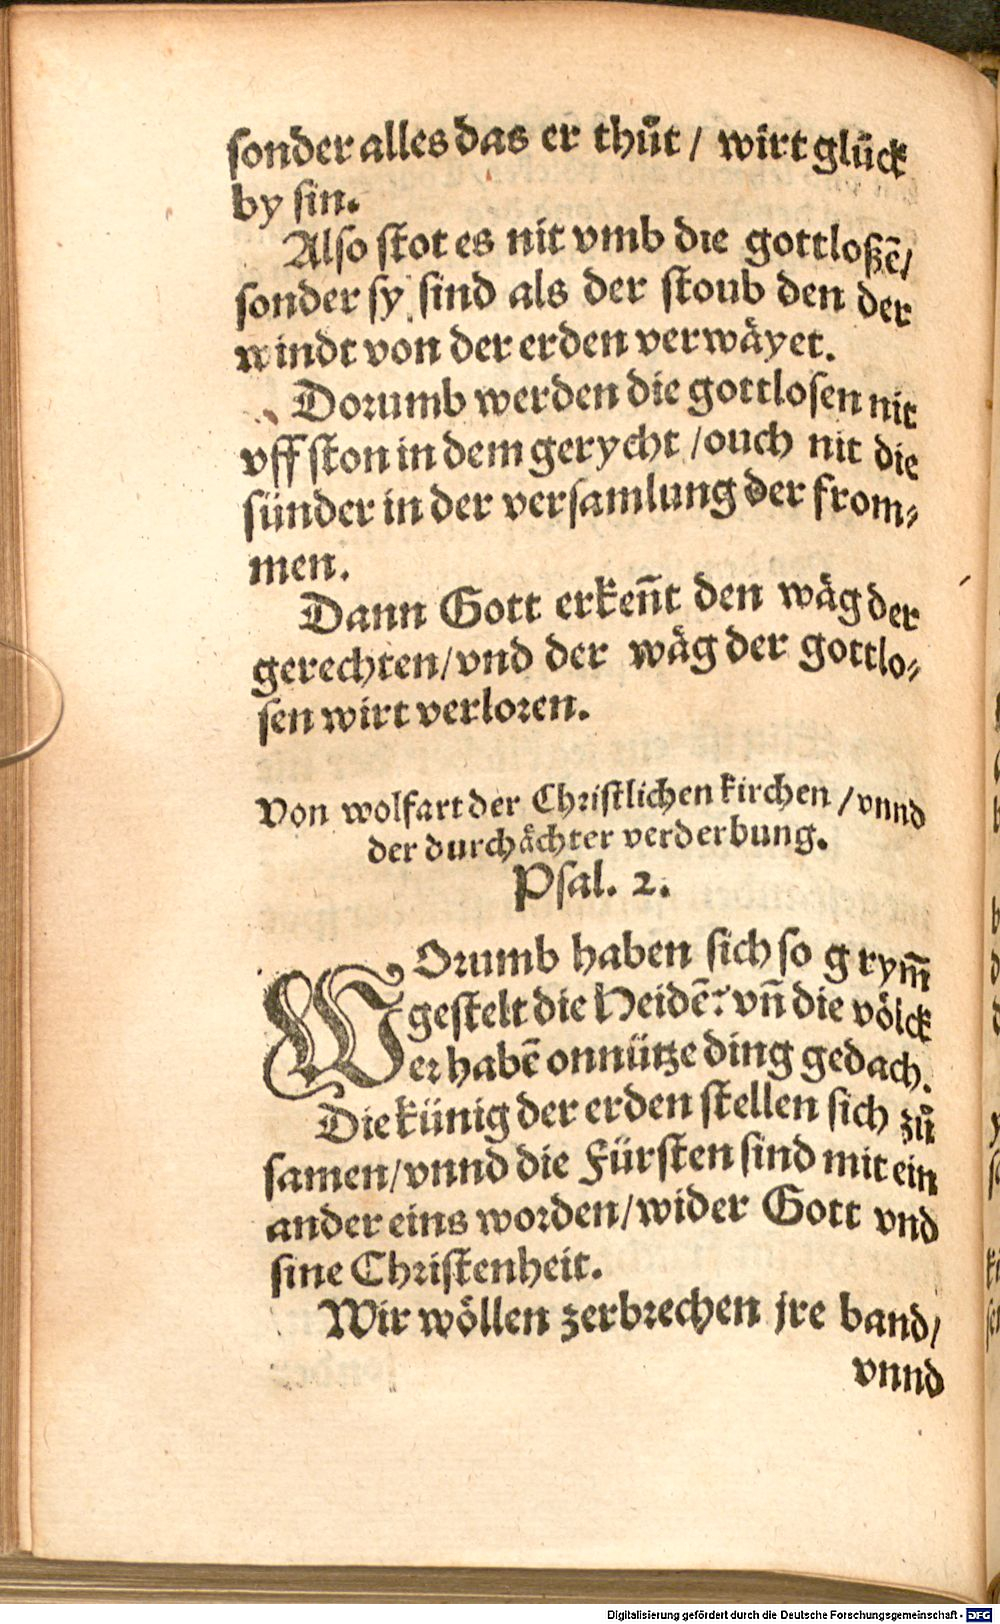 sonder alles das er thůt / wirt glück
by sin.
Also stot es nit vmb die gottloßẽ/
sonder sy sind als der stoub den der
windt von der erden verwäyet.
Dorumb werden die gottlosen nit
vff ston in dem gerycht / ouch nit die
sünder in der versamlung der from⸗
men.
Dann Gott erkeñt den wäg der
gerechten/ vnd der wäg der gottlo⸗
sen wirt verloren.
Von wolfart der Christlichen kirchen / vnnd
der durchächter verderbung.
Psal. 2.
WOrumb haben sich so grym̃
gestelt die Heidẽ? vñ die völck
er habẽ onnütze ding gedach.
Die künig der erden stellen sich zů
samen/ vnnd die Fürsten sind mit ein
ander eins worden/ wider Gott vnd
sine Christenheit.
Wir wöllen zerbrechen jre band/
vnnd
Digitalisierung gefördert durch die Deutsche Forschungsgemeinschaft - DFG